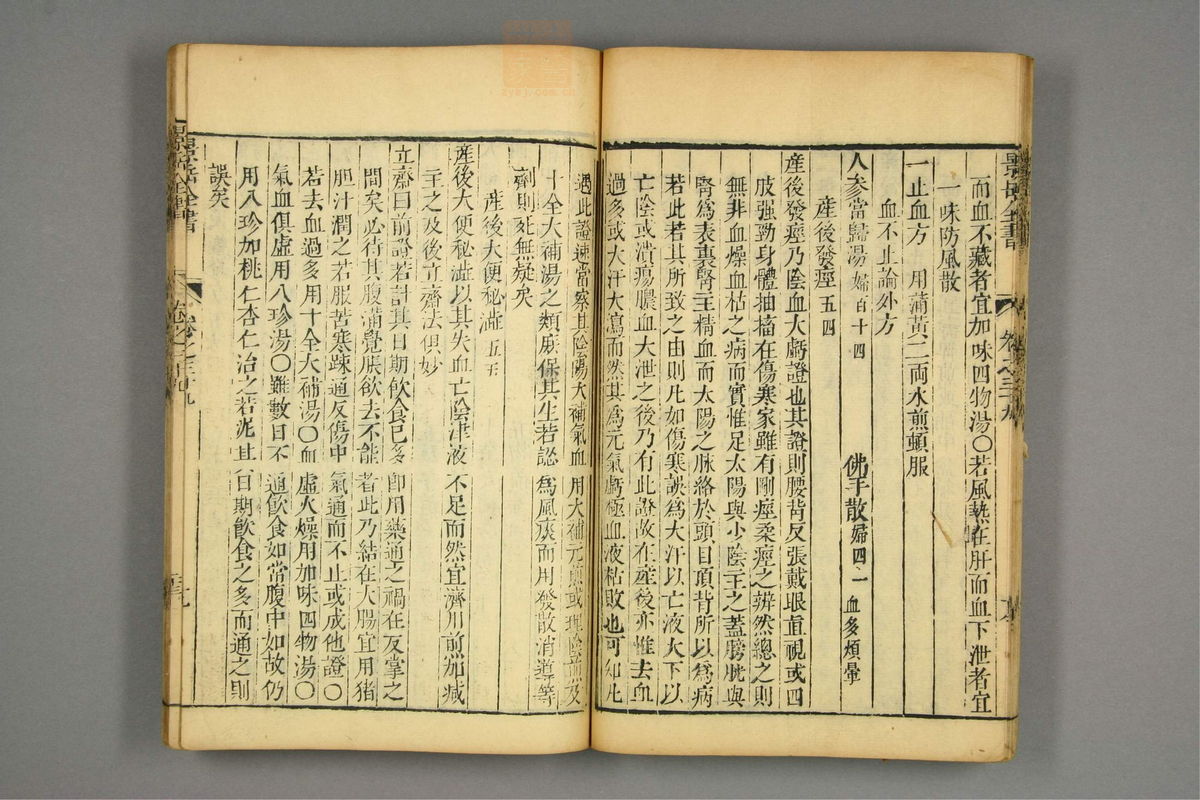 而血不藏者宜加味四物湯〇若風熱在肝而血下泄者宜
一味防風散
一止血方 用蒲黃二兩水煎頓服
血不止論外方
人參當歸湯 婦百十四 佛手散 婦四一 血多煩暈
產後發痙 五四
產後發痙乃陰血大虧證也其證則腰背反張戴眼直視或四
肢强勁身體抽搐在傷寒家雖有剛痙柔痙之辨然總之則
無非血燥血枯之病而實惟足太陽與少陰主之蓋膀胱與
腎爲表裏腎主精血而太陽之脉絡於頭目項背所以爲病
若此若其所致之由則凡如傷寒誤爲大汗以亡液大下以
亡陰或潰瘍膿血大泄之後乃有此證故在產後亦惟去血
過多或大汗大瀉而然其爲元氣虧極血液枯敗也可知凡
遇此證速當察其陰陽大補氣血用大補元煎或理陰煎及
十全大補湯之類庶保其生若認爲風痰而用發散消導等
劑則死無疑矣
產後大便秘澁 五五
產後大便秘澁以其失血亡陰津液不足而然宜濟川煎加減
主之及後立齋法俱妙
立齋曰前證若計其日期飲食已多卽用藥通之禍在反掌之
間矣必待其腹滿覺脹欲去不能者此乃結在大腸宜用猪
胆汁潤之若服苦寒疎通反傷中氣通而不止或成他證〇
若去血過多用十全大補湯〇血虛火燥用加味四物湯〇
氣血俱虛用八珍湯〇雖數日不通飲食如常腹中如故仍
用八珍加桃仁杏仁治之若泥其日期飲食之多而通之則
誤矣
景岳全書
卷之三十九